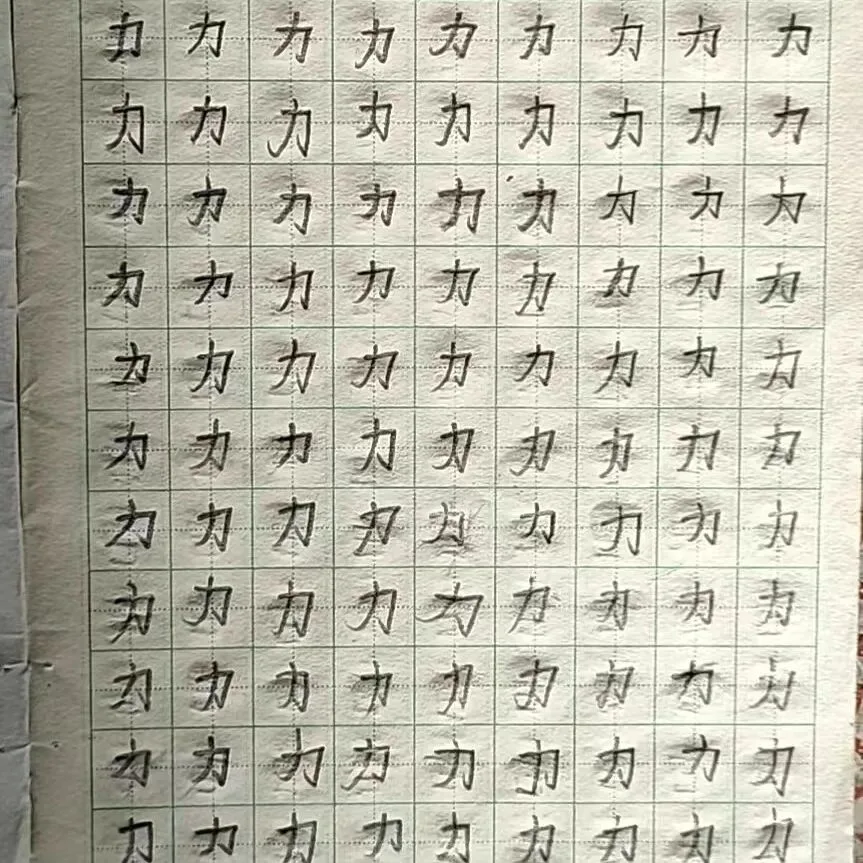 力力力力力力力力力
力力力力力力力力力
力力力力力力力力力
力力力力力力力力力
力力力力力力力力力
力力力力力力力力力
力力力力力力力力力
力力力力力力力力力
力力力力力力力力力
力力力力力力力力力
力力力力力力力力力